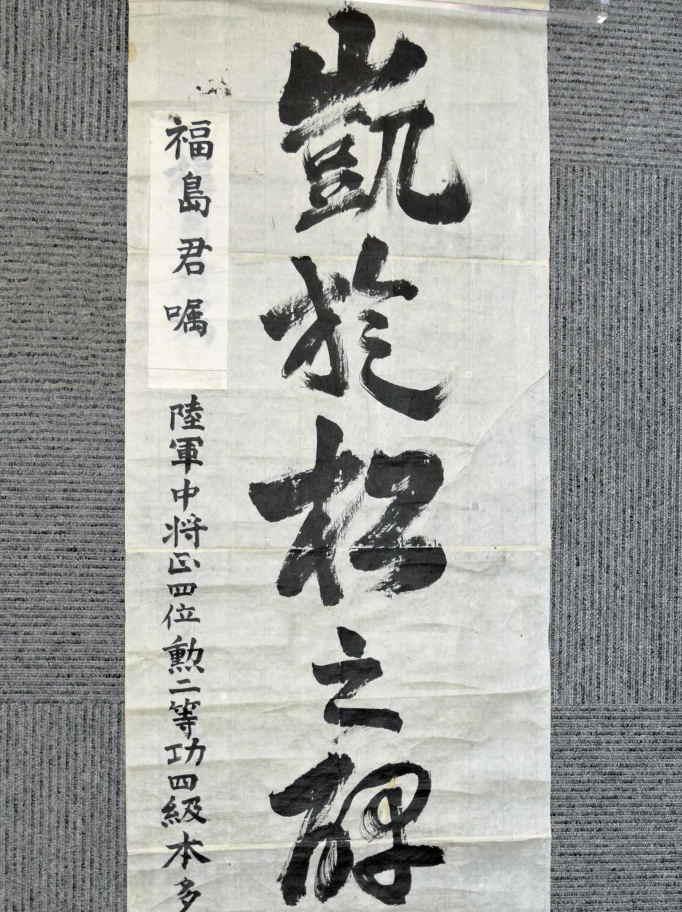 凱旋松之碑
福島君嘱
陸軍中将正四位勲二等功四級本多